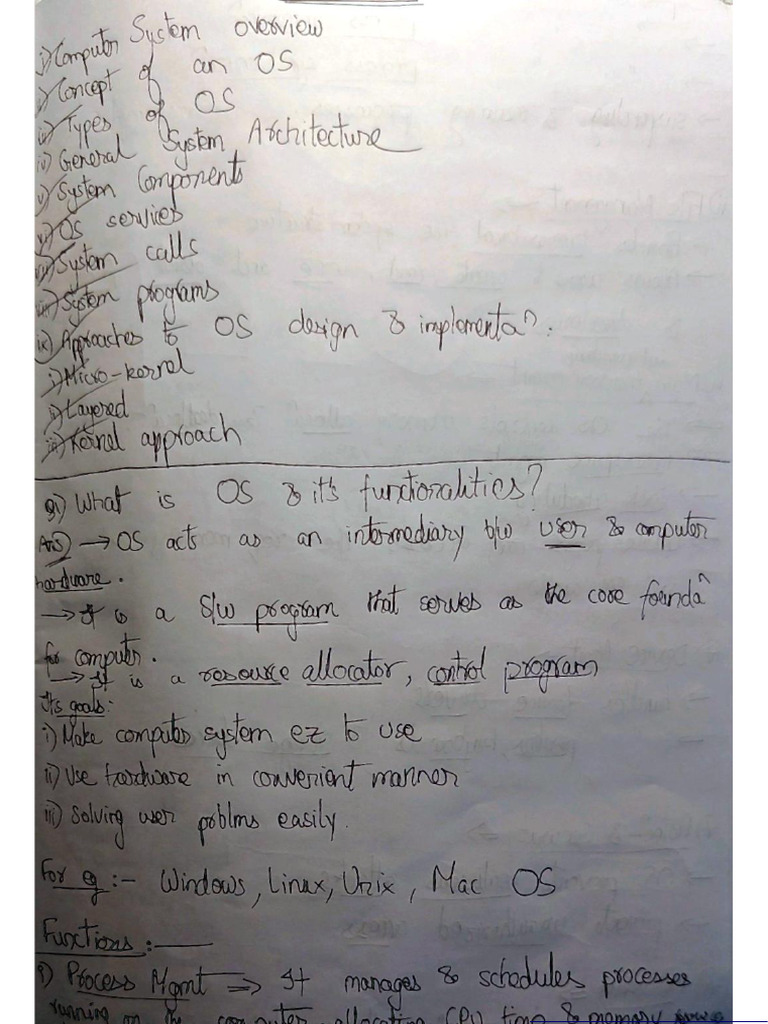 i) Computer System overview
ii) Concept of an OS
iii) Types of OS
iv) General System Architecture
v) System Components
vi) OS services
vii) System calls
viii) System programs
ix) Approaches to OS design & implementaⁿ.
i) Micro-kernel
ii) Layered
iii) Kernel approach
Q1) What is OS & it's functionalities?
Ans) → OS acts as an intermediary b/w user & computer
hardware.
→ It is a S/w program that serves as the core foundaⁿ
for computer.
→ It is a resource allocator, control program
Its goals:
i) Make computer system ez to use
ii) Use hardware in convenient manner
iii) Solving user problms easily.
For eg :- Windows, Linux, Unix, Mac OS
Functions :—
i) Process Mgmt ⇒ It manages & schedules processes
running on the computer, allocating CPU time & memory